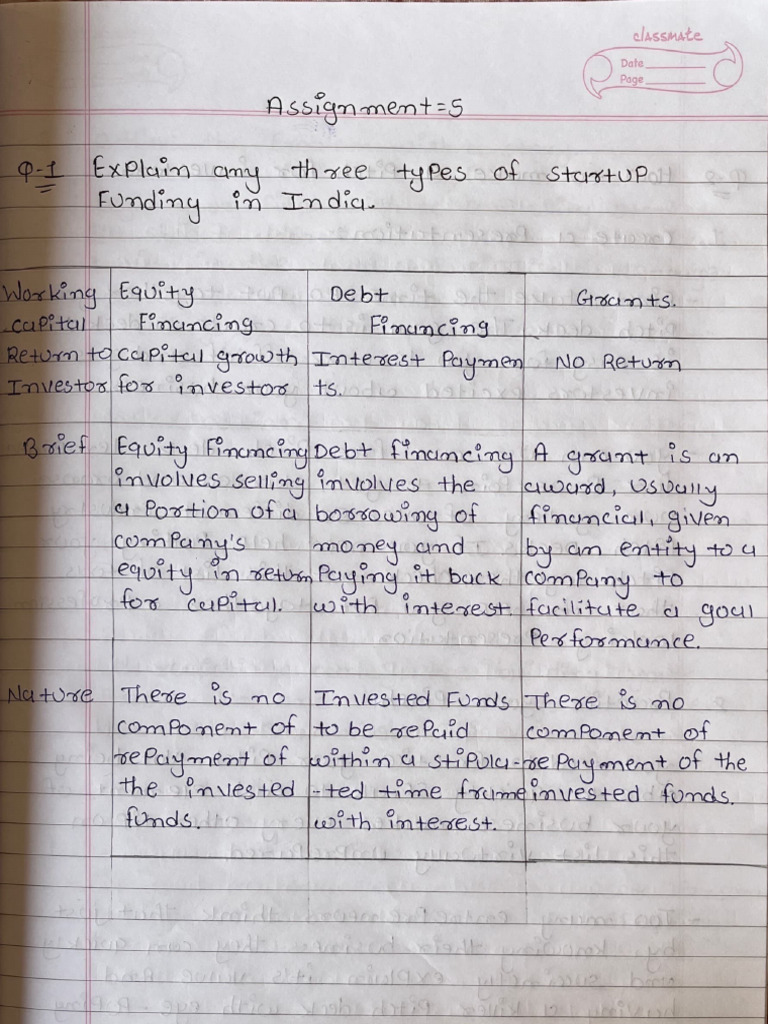 classmate
Date
Page
Assignment=5
Q-1 Explain any three types of startup
Funding in India.
Working Equity Debt Grants.
capital Financing Financing
Return to capital growth Interest Paymen No Return
Investor for investor ts.
Brief Equity Financing Debt financing A grant is an
involves selling involves the award, usually
a portion of a borrowing of financial, given
company's money and by an entity to a
equity in return Paying it back company to
for capital. with interest. facilitate a goal
Performance.
Nature There is no Invested Funds There is no
component of to be repaid component of
repaiyment of within a stipula- re Payment of the
the invested -ted time frame invested funds.
funds. with interest.